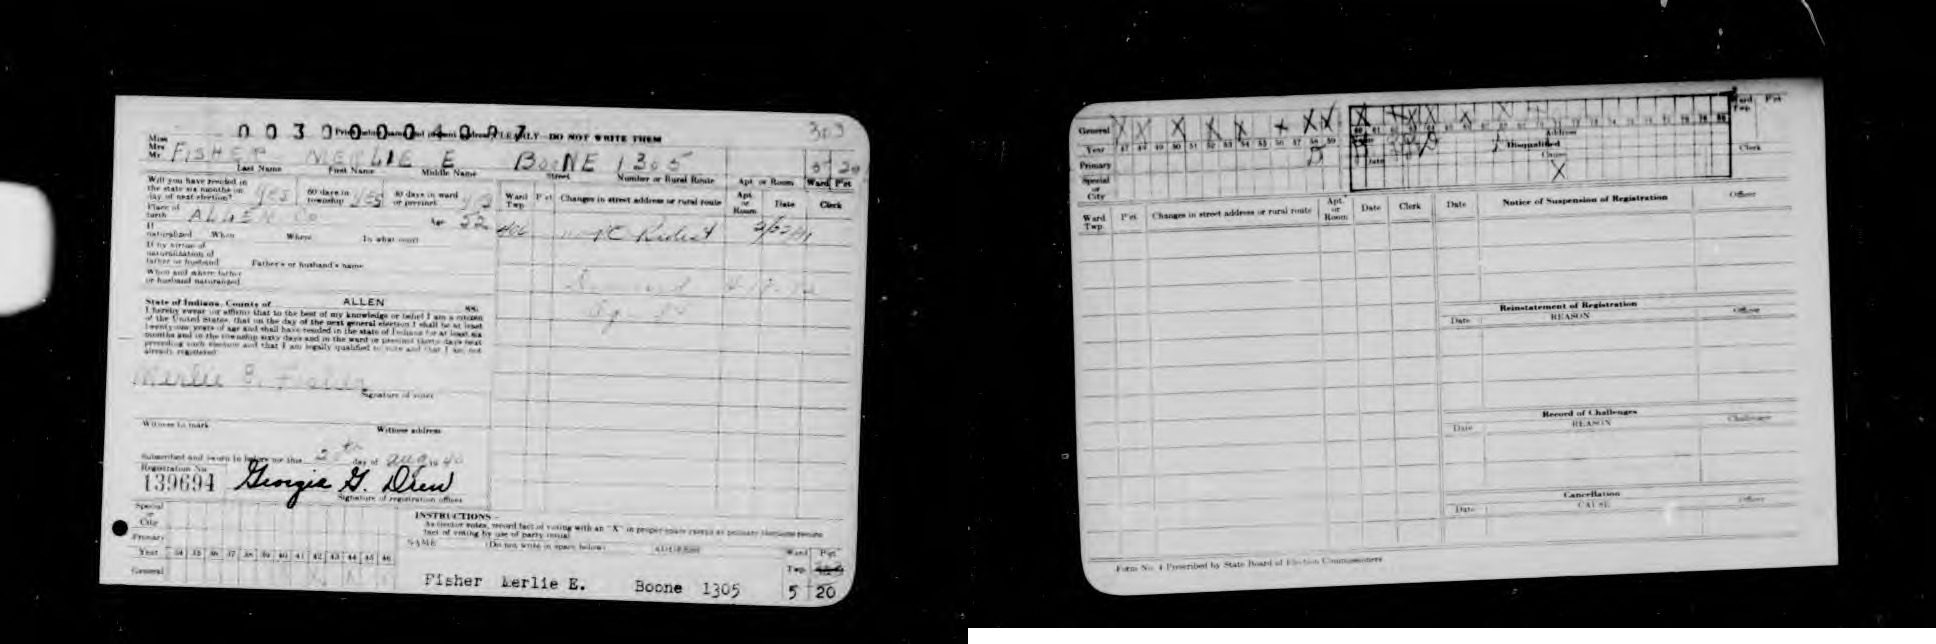 303
0030004007
CLEARLY—DO NOT WRITE THEM
Miss
Mrs
Mr. FISHER MERLIE E BOONE 1305 5 20
Last Name First Name Middle Name Street Number or Rural Route Apt or Room Ward P'ct
Will you have resided in
the state six months on
day of next election? yes 60 days in
township yes 30 days in ward
or precinct
Place of
birth ALLEN Co Age 52
If
naturalized When Where In what court
If by virtue of
naturalization of
father or husband Father's or husband's name
When and where father
or husband naturalized
Ward
Twp P'ct Changes in street address or rural route Apt.
or
Room Date Clerk
State of Indiana, County of ALLEN SS:
I hereby swear (or affirm) that to the best of my knowledge or belief I am a citizen
of the United States, that on the day of the next general election I shall be at least
twenty-one years of age and shall have resided in the state of Indiana for at least six
months and in the township sixty days and in the ward or precinct thirty days next
preceding such election and that I am legally qualified to vote and that I am not
already registered
Merlie E. Fisher
Signature of voter
Witness to mark Witness address
Subscribed and sworn to before me this day of Aug 19 40
Registration No.
139694 Georgia G. Drew
Signature of registration officer
Special
or
City
Primary
Year 34 35 36 37 38 39 40 41 42 43 44 45 46
General
INSTRUCTIONS—
As elector votes, record fact of voting with an "X" in proper space except at primary elections record
fact of voting by use of party initial
NAME (Do not write in space below) ADDRESS Ward
Twp P'ct
Fisher Merlie E. Boone 1305 5 20
General X X X X X X X X
Year 47 48 49 50 51 52 53 54 55 56 57 58 59
Primary
Special
or
City
Address
Disqualified
Cause
X
Date
Ward
Twp P'ct
Clerk
Ward
Twp P'ct Changes in street address or rural route Apt.
or
Room Date Clerk
Date Notice of Suspension of Registration Officer
Reinstatement of Registration
Date REASON Officer
Record of Challenges
Date REASON Challenger
Cancellation
Date CAUSE Officer
Form No. 4 Prescribed by State Board of Election Commissioners